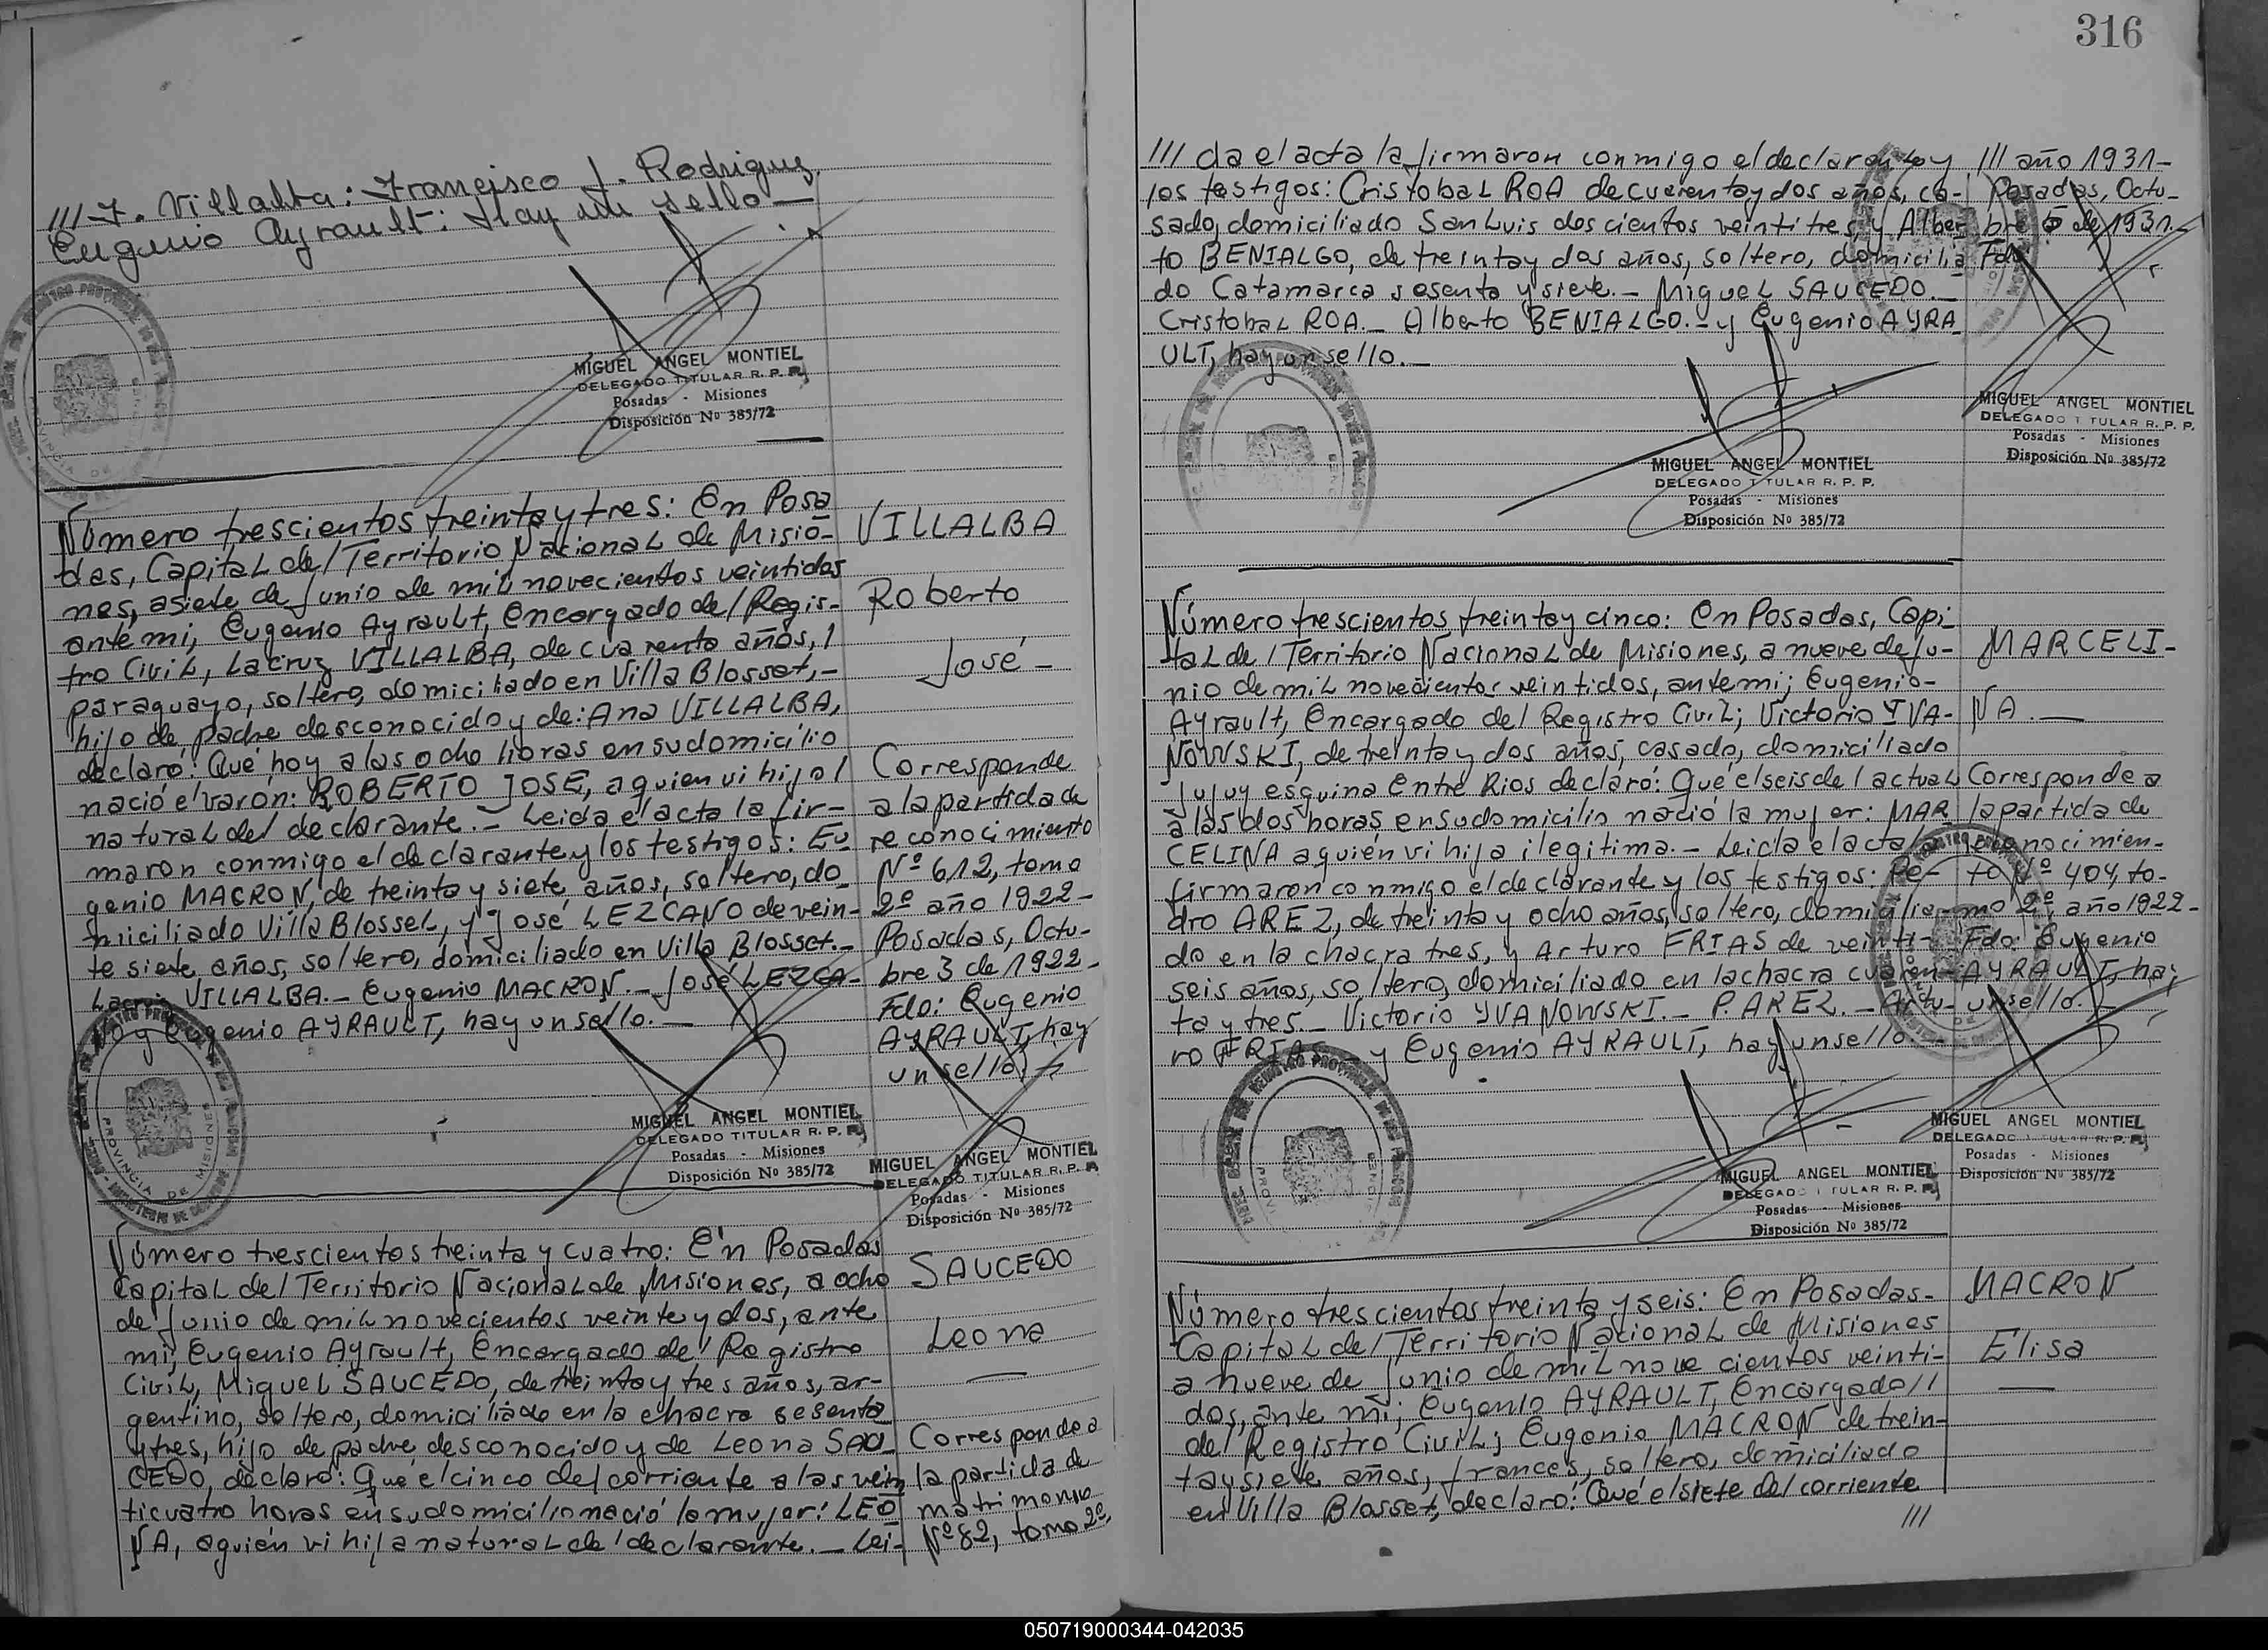 /// F. Villalba: Francisco J. Rodriguez
Eugenio Ayrault: Hay un sello —
MIGUEL ANGEL MONTIEL
DELEGADO TITULAR R. P. P.
Posadas - Misiones
Disposición Nº 385/72
Número trescientos treinta y tres: En Posa
das, Capital del Territorio Nacional de Misio-
nes, a siete de Junio de mil novecientos veintidos
ante mi, Eugenio Ayrault, Encargado del Regis-
tro Civil, Lacruz VILLALBA, de cuarenta años, /
paraguayo, soltero, domiciliado en Villa Blosset, -
hijo de padre desconocido y de: Ana VILLALBA,
declaró: Qué hoy a las ocho horas en su domicilio
nació el varón: ROBERTO JOSE, a quien vi hijo /
natural del declarante. - Leida el acta la fir-
maron conmigo el declarante y los testigos: Eu
genio MACRON, de treinta y siete años, soltero, do
miciliado Villa Blossel, y José LEZCANO de vein-
te siete años, soltero, domiciliado en Villa Blosset. -
Lacruz VILLALBA. - Eugenio MACRON. - José LEZCA-
NO y Eugenio AYRAULT, hay un sello. —
VILLALBA
Roberto
José -
Corresponde
a la partida de
reconocimiento
Nº 612, tomo
2º año 1922 -
Posadas, Octu-
bre 3 de 1922 -
Fdo: Eugenio
AYRAULT, hay
un sello.
MIGUEL ANGEL MONTIEL
DELEGADO TITULAR R. P. P.
Posadas - Misiones
Disposición Nº 385/72
MIGUEL ANGEL MONTIEL
DELEGADO TITULAR R. P. P.
Posadas - Misiones
Disposición Nº 385/72
Número trescientos treinta y cuatro: En Posadas
Capital del Territorio Nacional de Misiones, a ocho
de Junio de mil novecientos veinte y dos, ante
mi, Eugenio Ayrault, Encargado del Registro
Civil, Miguel SAUCEDO, de treinta y tres años, ar-
gentino, soltero, domiciliado en la chacra sesenta
y tres, hijo de padre desconocido y de Leona SAU
CEDO, declaró: Qué el cinco del corriente a las vein
ticuatro horas en su domicilio nació la mujer: LEO
NA, a quién vi hija natural del declarante. - Lei-
SAUCEDO
Leona
—
Corresponde a
la partida de
matrimonio
Nº 82, tomo 2º,
316
/// da el acta la firmaron conmigo el declarante y
los testigos: Cristobal ROA de cuarenta y dos años, ca-
sado, domiciliado San Luis doscientos veintitres, y Alber
to BENIALGO, de treinta y dos años, soltero, domicilia
do Catamarca sesenta y siete. - Miguel SAUCEDO. -
Cristobal ROA. - Alberto BENIALGO. - y Eugenio AYRA
ULT, hay un sello. —
/// año 1931-
Posadas, Octu-
bre 5 de 1931. -
Fdo
MIGUEL ANGEL MONTIEL
DELEGADO TITULAR R. P. P.
Posadas - Misiones
Disposición Nº 385/72
MIGUEL ANGEL MONTIEL
DELEGADO TITULAR R. P. P.
Posadas - Misiones
Disposición Nº 385/72
Número trescientos treinta y cinco: En Posadas, Capi-
tal del Territorio Nacional de Misiones, a nueve de Ju-
nio de mil novecientos veintidos, ante mi; Eugenio -
Ayrault, Encargado del Registro Civil; Victorio IVA-
NOWSKI, de treinta y dos años, casado, domiciliado
Jujuy esquina Entre Rios declaró: Qué el seis del actual
a las dos horas en su domicilio nació la mujer: MAR
CELINA a quién vi hija ilegitima. - Leida el acta la
firmaron conmigo el declarante y los testigos: Pe-
dro AREZ, de treinta y ocho años, soltero, domicilia-
do en la chacra tres, y Arturo FRIAS de veinti-
seis años, soltero, domiciliado en la chacra cuaren-
ta y tres. - Victorio YVANOWSKI. - P. AREZ. - Artu-
ro FRIAS. - y Eugenio AYRAULT, hay un sello. -
MARCELI-
NA. —
Corresponde a
la partida de
reconocimien-
to Nº 404, to-
mo 2º, año 1922 -
Fdo: Eugenio
AYRAULT, hay
un sello.
MIGUEL ANGEL MONTIEL
DELEGADO TITULAR R. P. P.
Posadas - Misiones
Disposición Nº 385/72
MIGUEL ANGEL MONTIEL
DELEGADO TITULAR R. P. P.
Posadas - Misiones
Disposición Nº 385/72
Número trescientos treinta y seis: En Posadas -
Capital del Territorio Nacional de Misiones
a nueve de Junio de mil novecientos veinti-
dos, ante mi; Eugenio AYRAULT, Encargado //
del Registro Civil; Eugenio MACRON de trein-
ta y siete años, frances, soltero, domiciliado
en Villa Blosset, declaró: Qué el siete del corriente
///
MACRON
Elisa
—
050719000344-042035